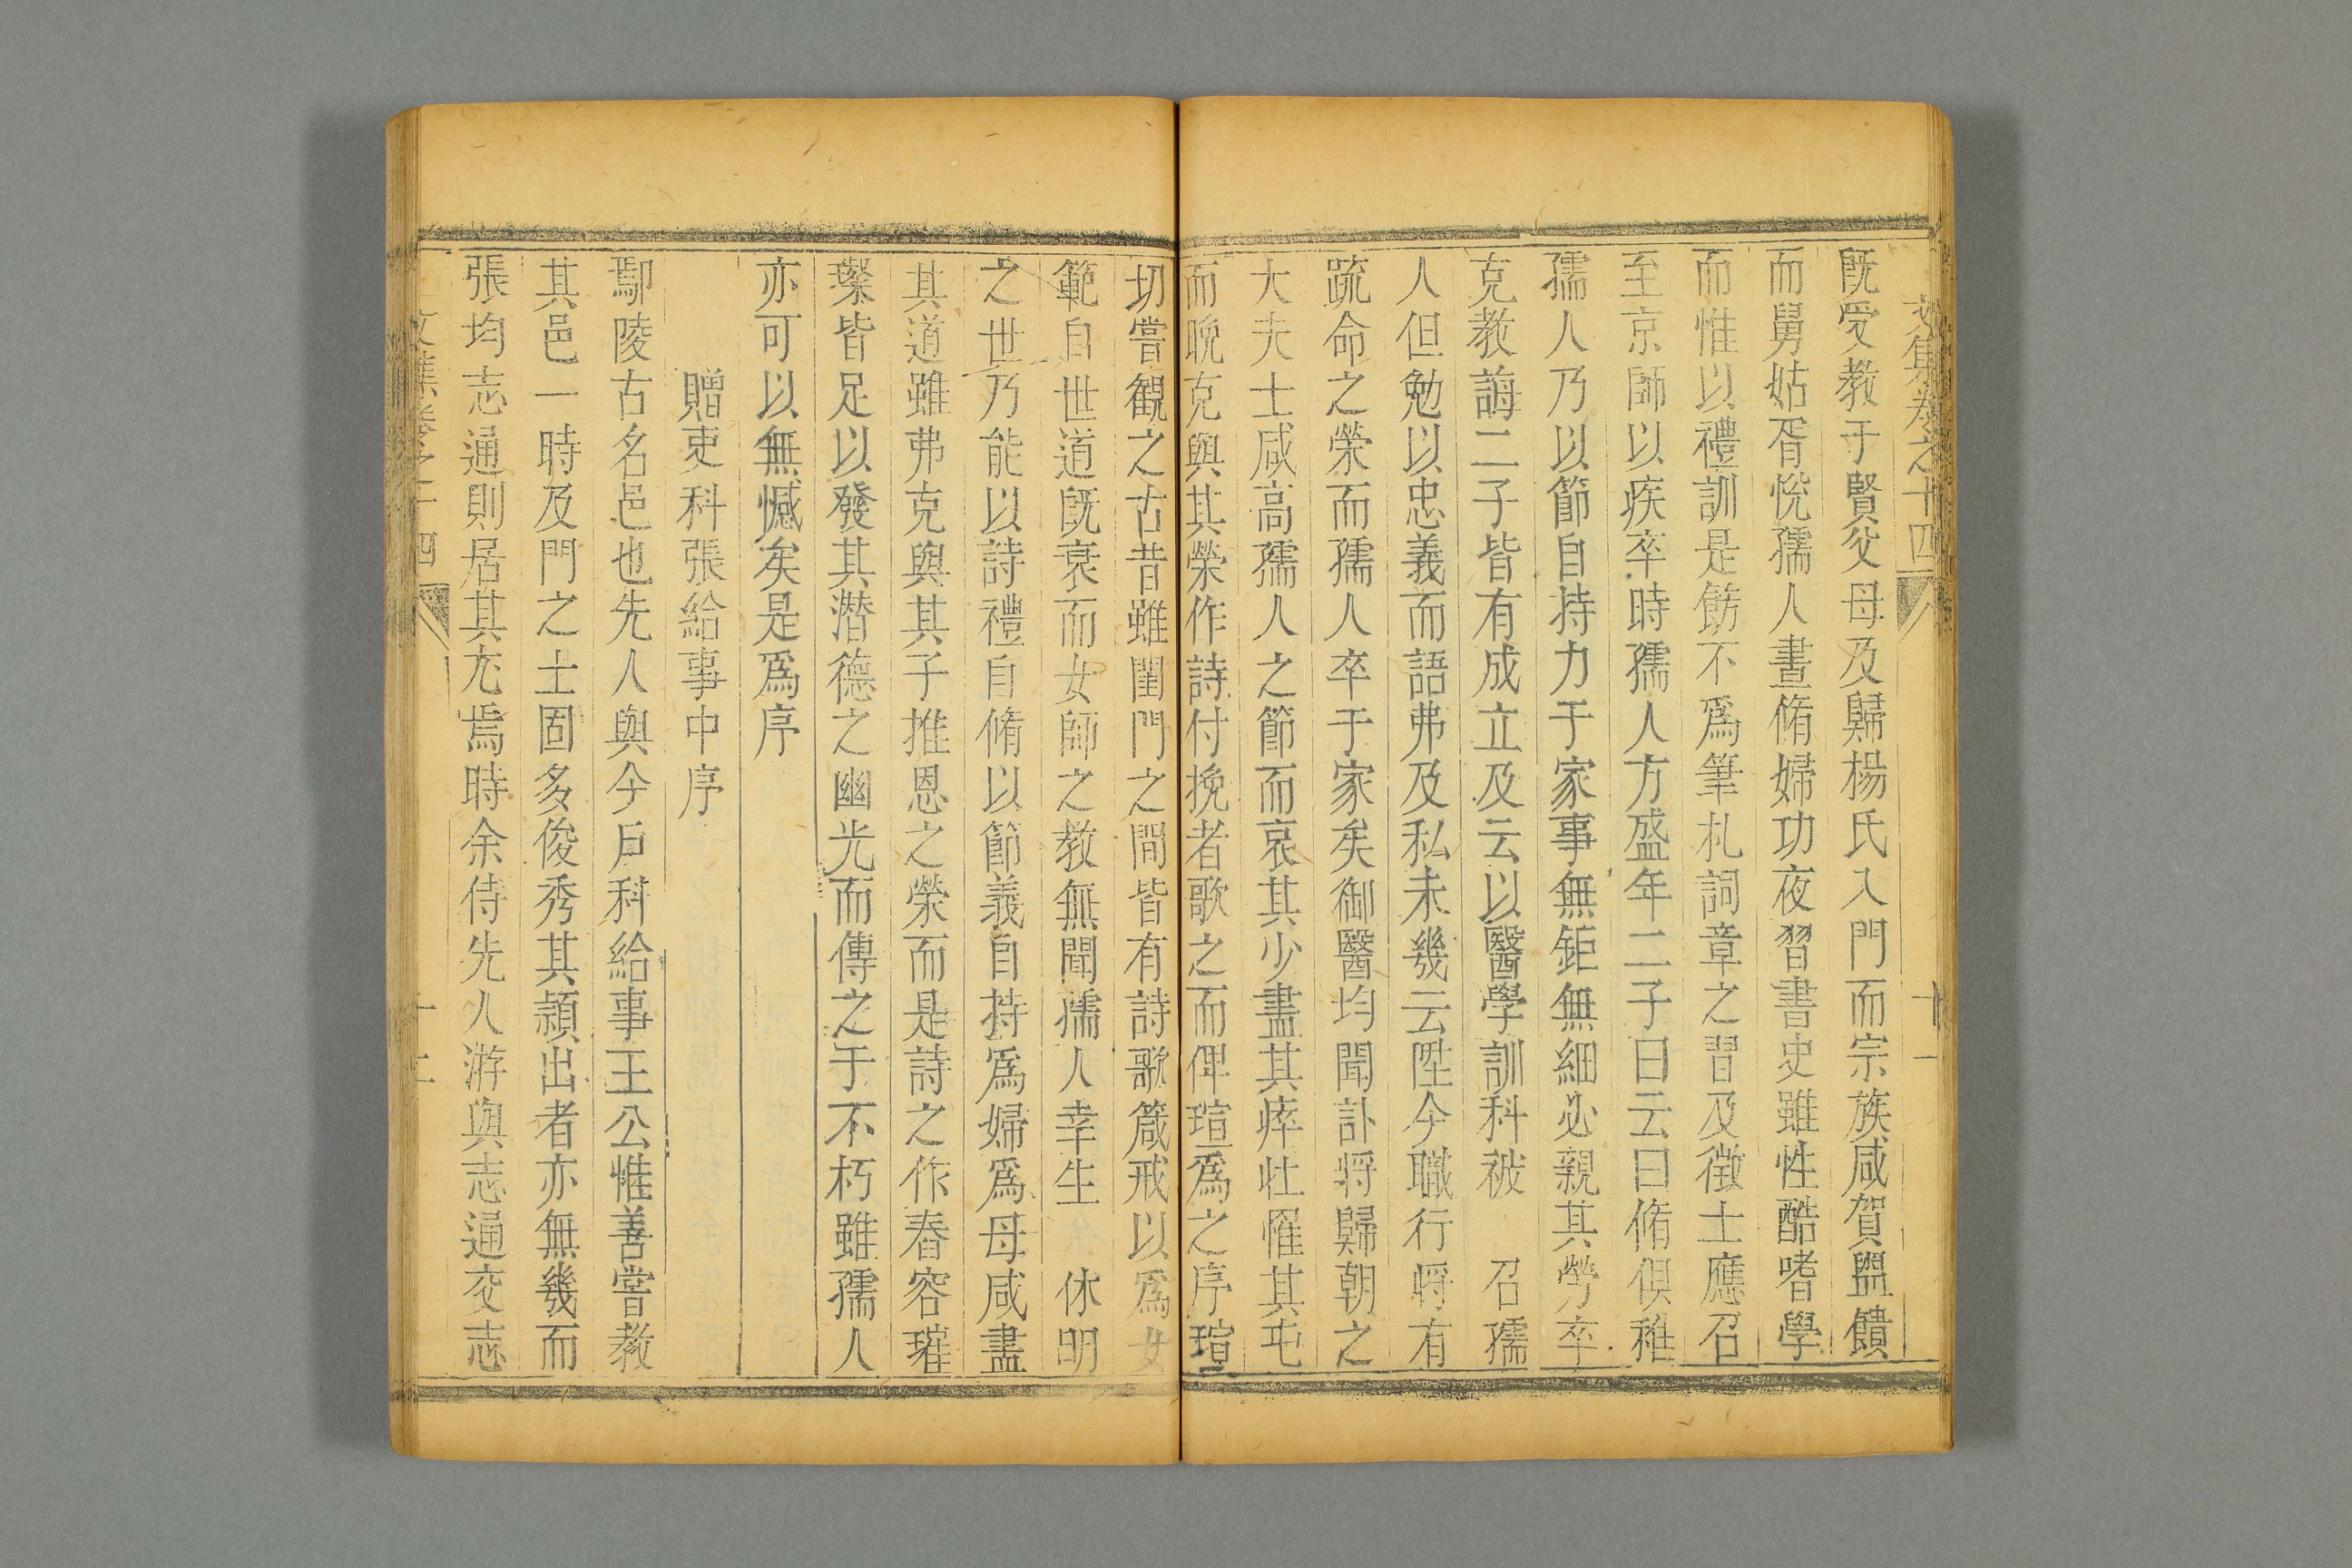 文集卷之十四 十一
旣受敎于賢父母及歸楊氏入門而宗族咸賀盥饋
而舅姑胥悅孺人晝脩婦功夜習書史雖性酷嗜學
而惟以禮訓是飭不爲筆札詞章之習及徵士應召
至京師以疾卒時孺人方盛年二子曰云曰脩俱稚
孺人乃以節自持力于家事無鉅無細必親其勞卒
克教誨二子皆有成立及云以醫學訓科被 召孺
人但勉以忠義而語弗及私未幾云陞今職行將有
疏命之榮而孺人卒于家矣御醫均聞訃將歸朝之
大夫士咸高孺人之節而哀其少盡其瘁壯罹其屯
而晚克與其榮作詩付挽者歌之而俾瑄爲之序瑄
切嘗觀之古昔雖閨門之間皆有詩歌箴戒以爲女
範自世道旣衰而女師之敎無聞孺人幸生 休明
之世乃能以詩禮自脩以節義自持爲婦爲母咸盡
其道雖弗克與其子推恩之榮而是詩之作舂容璀
璨皆足以發其潛德之幽光而傳之于不朽雖孺人
亦可以無憾矣是爲序
贈吏科張給事中序
鄢陵古名邑也先人與今戶科給事王公惟善嘗教
其邑一時及門之士固多俊秀其頴出者亦無幾而
張均志通則居其尢焉時余侍先人游與志通交志
文集卷之十四